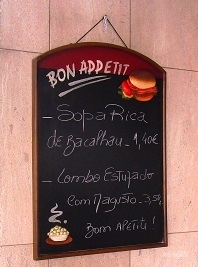 BON APPETIT
- Sopa Rica
de Bacalhau - 1,40€
- Lombo Estufado
Com Magusto - 3,5
Bom Apetite!